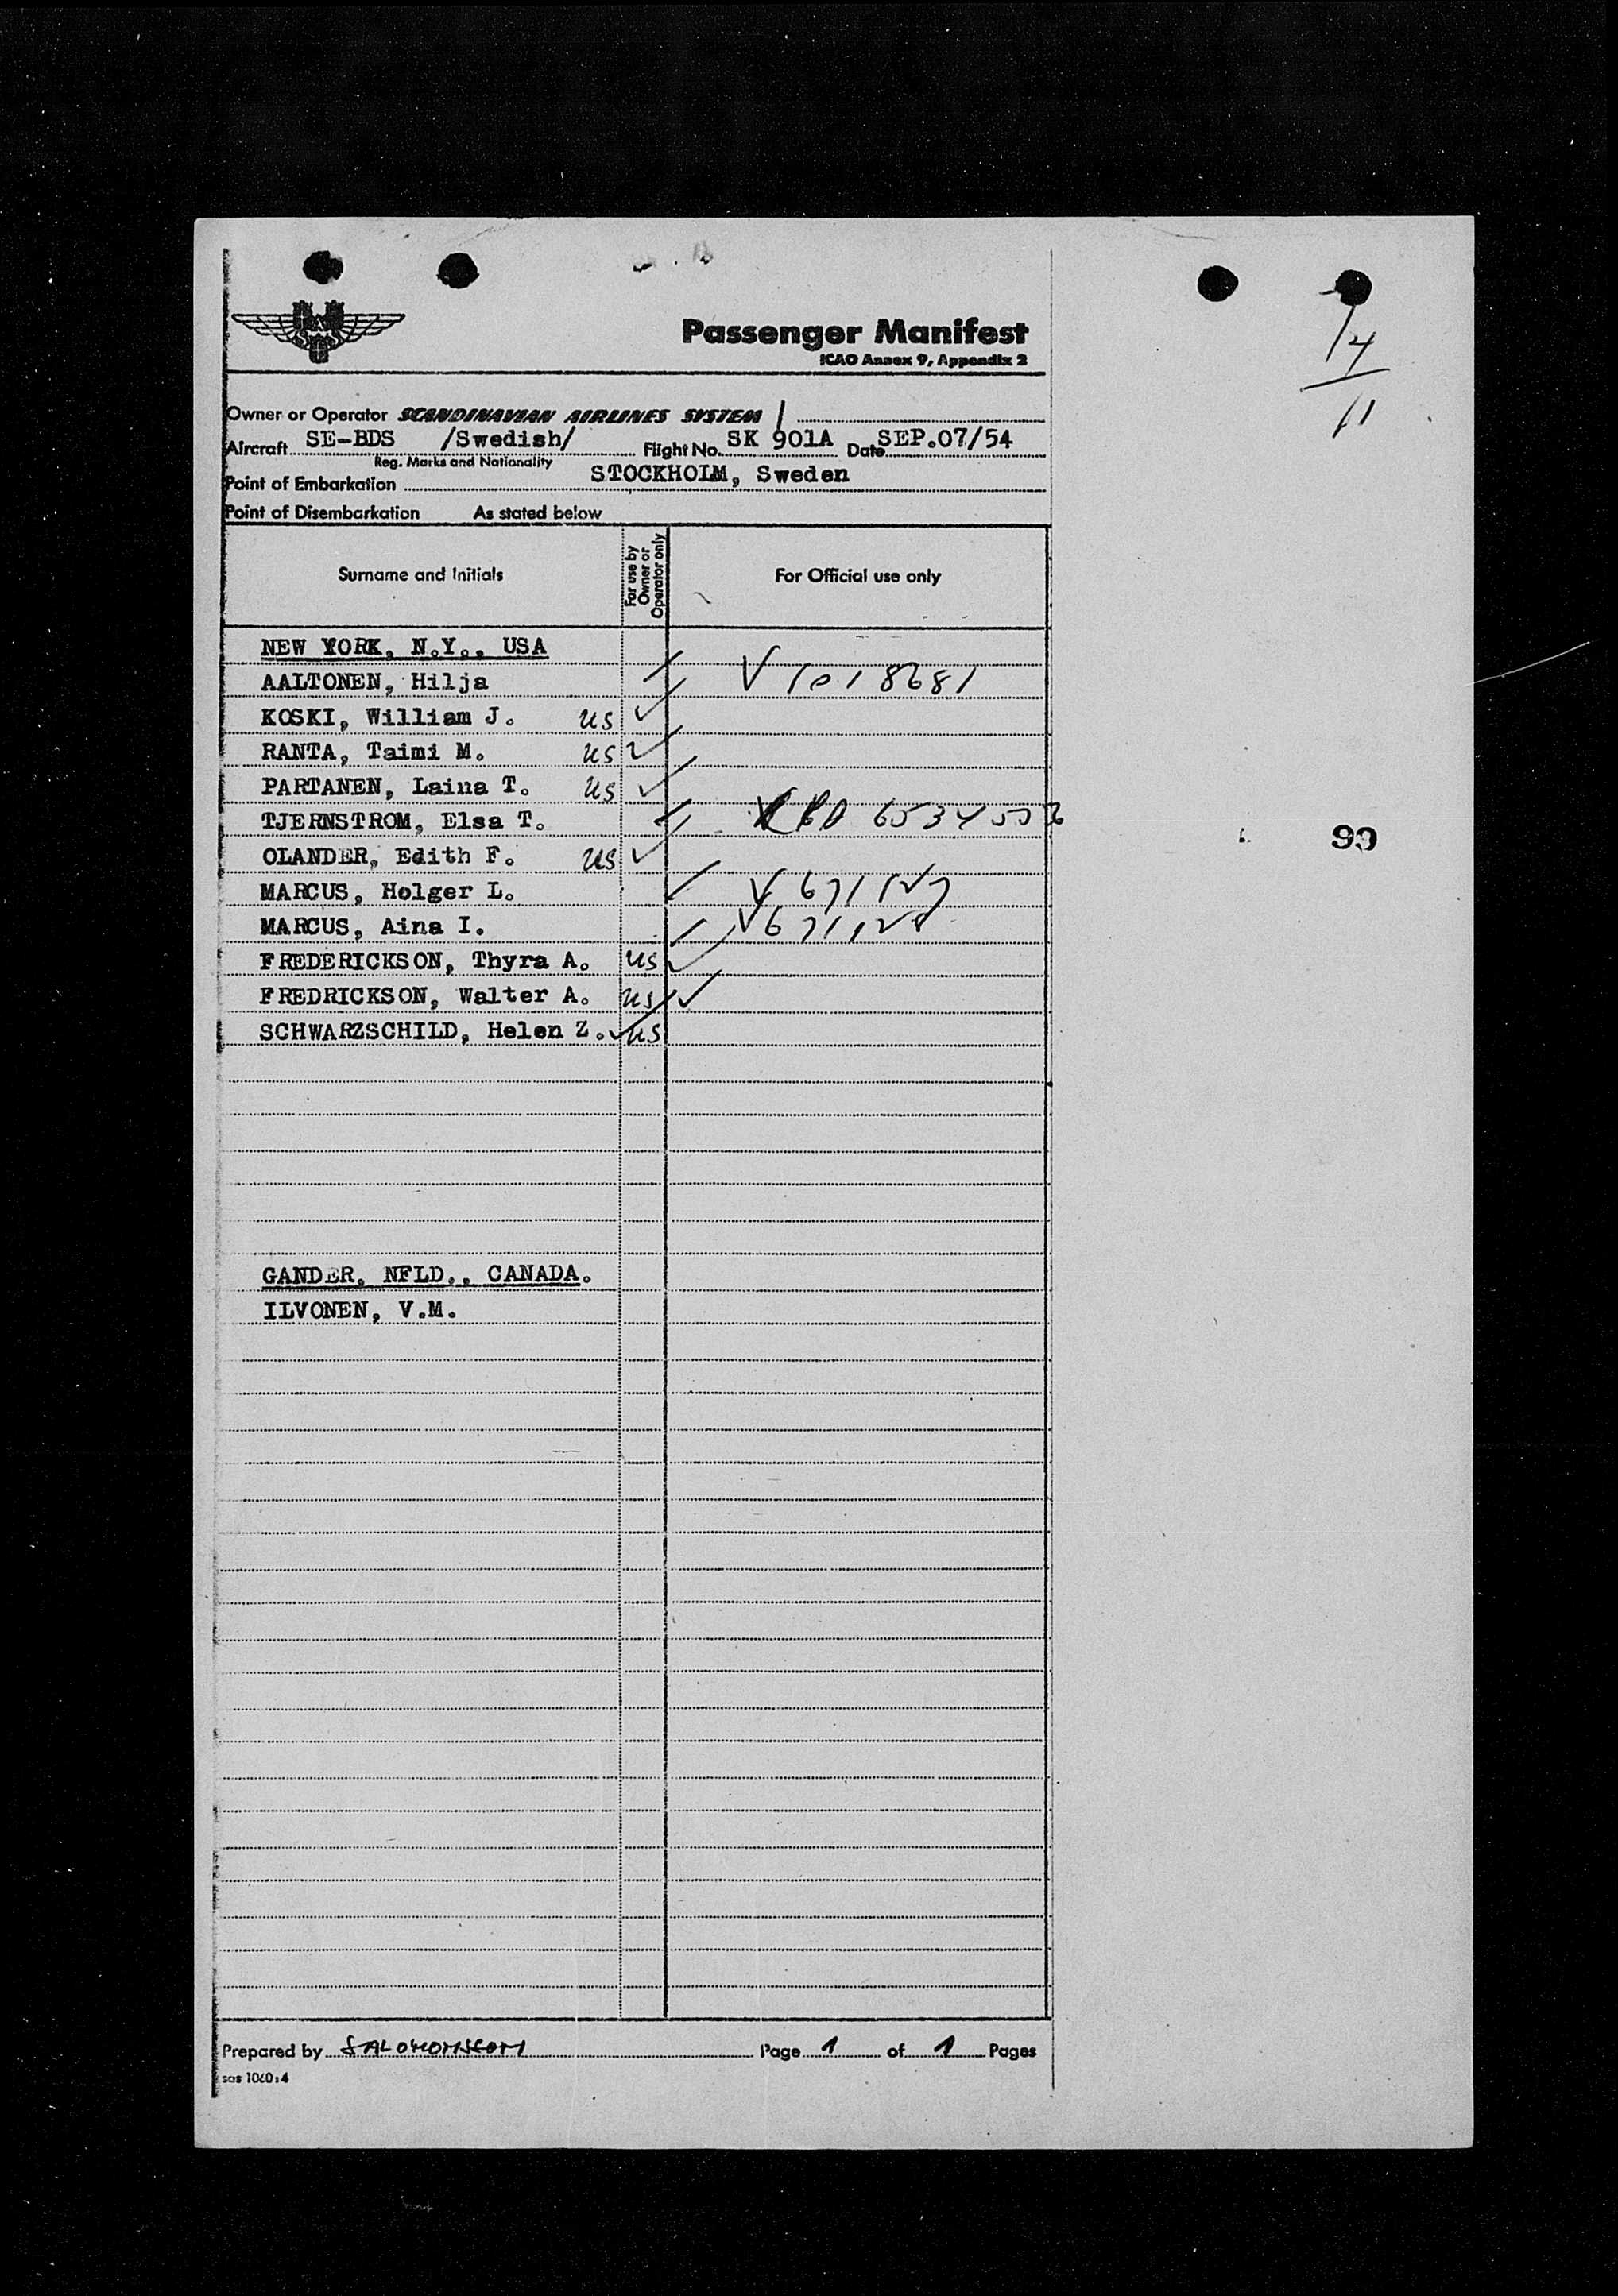 Passenger Manifest
ICAO Annex 9, Appendix 2
14
11
Owner or Operator SCANDINAVIAN AIRLINES SYSTEM
Aircraft SE-BDS /Swedish/ Flight No. SK 901A Date SEP.07/54
Reg. Marks and Nationality
Point of Embarkation STOCKHOLM, Sweden
Point of Disembarkation As stated below
Surname and Initials For use by Owner or Operator only For Official use only
NEW YORK, N.Y., USA
AALTONEN, Hilja V 1018681
KOSKI, William J. US
RANTA, Taimi M. US
PARTANEN, Laina T. US
TJERNSTROM, Elsa T.
OLANDER, Edith F. US
MARCUS, Holger L.
MARCUS, Aina I.
FREDERICKSON, Thyra A. US
FREDRICKSON, Walter A. US
SCHWARZSCHILD, Helen Z. US
90
GANDER, NFLD., CANADA.
ILVONEN, V.M.
Prepared by SALOMONSSON Page 1 of 1 Pages
sas 1060:4